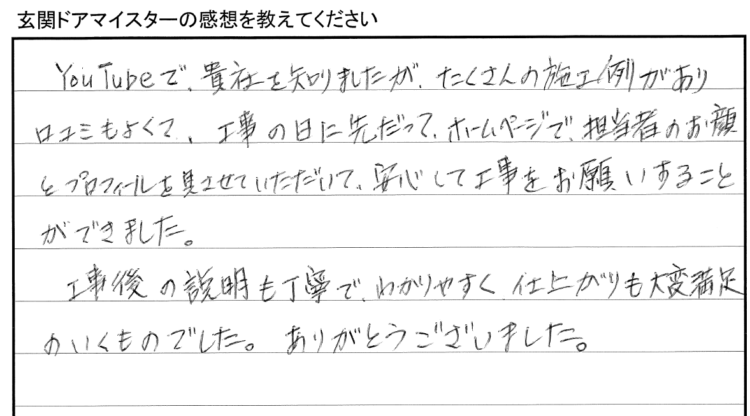 玄関ドアマイスターの感想を教えてください
YouTubeで、貴社を知りましたが、たくさんの施工例があり
口コミもよくて、工事の日に先だって、ホームページで、担当者のお顔
とプロフィールを見させていただいて、安心して工事をお願いすること
ができました。
工事後の説明も丁寧で、わかりやすく、仕上がりも大変満足
のいくものでした。ありがとうございました。